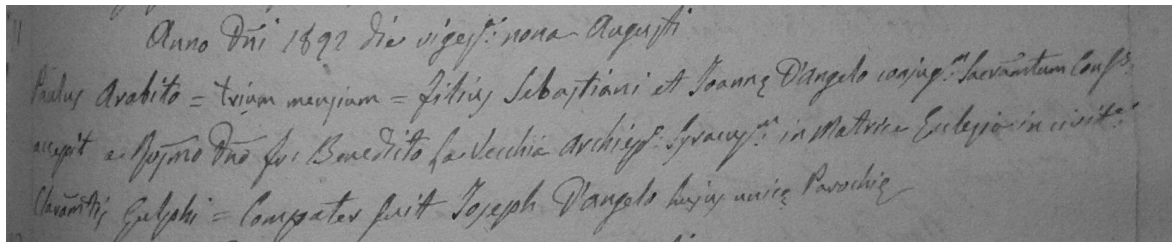 11 Anno Dñi 1892 die vigesi: nona Augusti
Paulus Arabito = trium mensium = filius Sebastiani et Joannę D'Angelo conjug.m Sacrãmtum Conf.s
accepit a Rṽmo Dño fr. Benedicto La Vecchia Archiep.o Syracus.no in Matrice Eclesia in civit.e
Claramtis Gulphi = Compater fuit Joseph D'Angelo hujus unicę Parochię